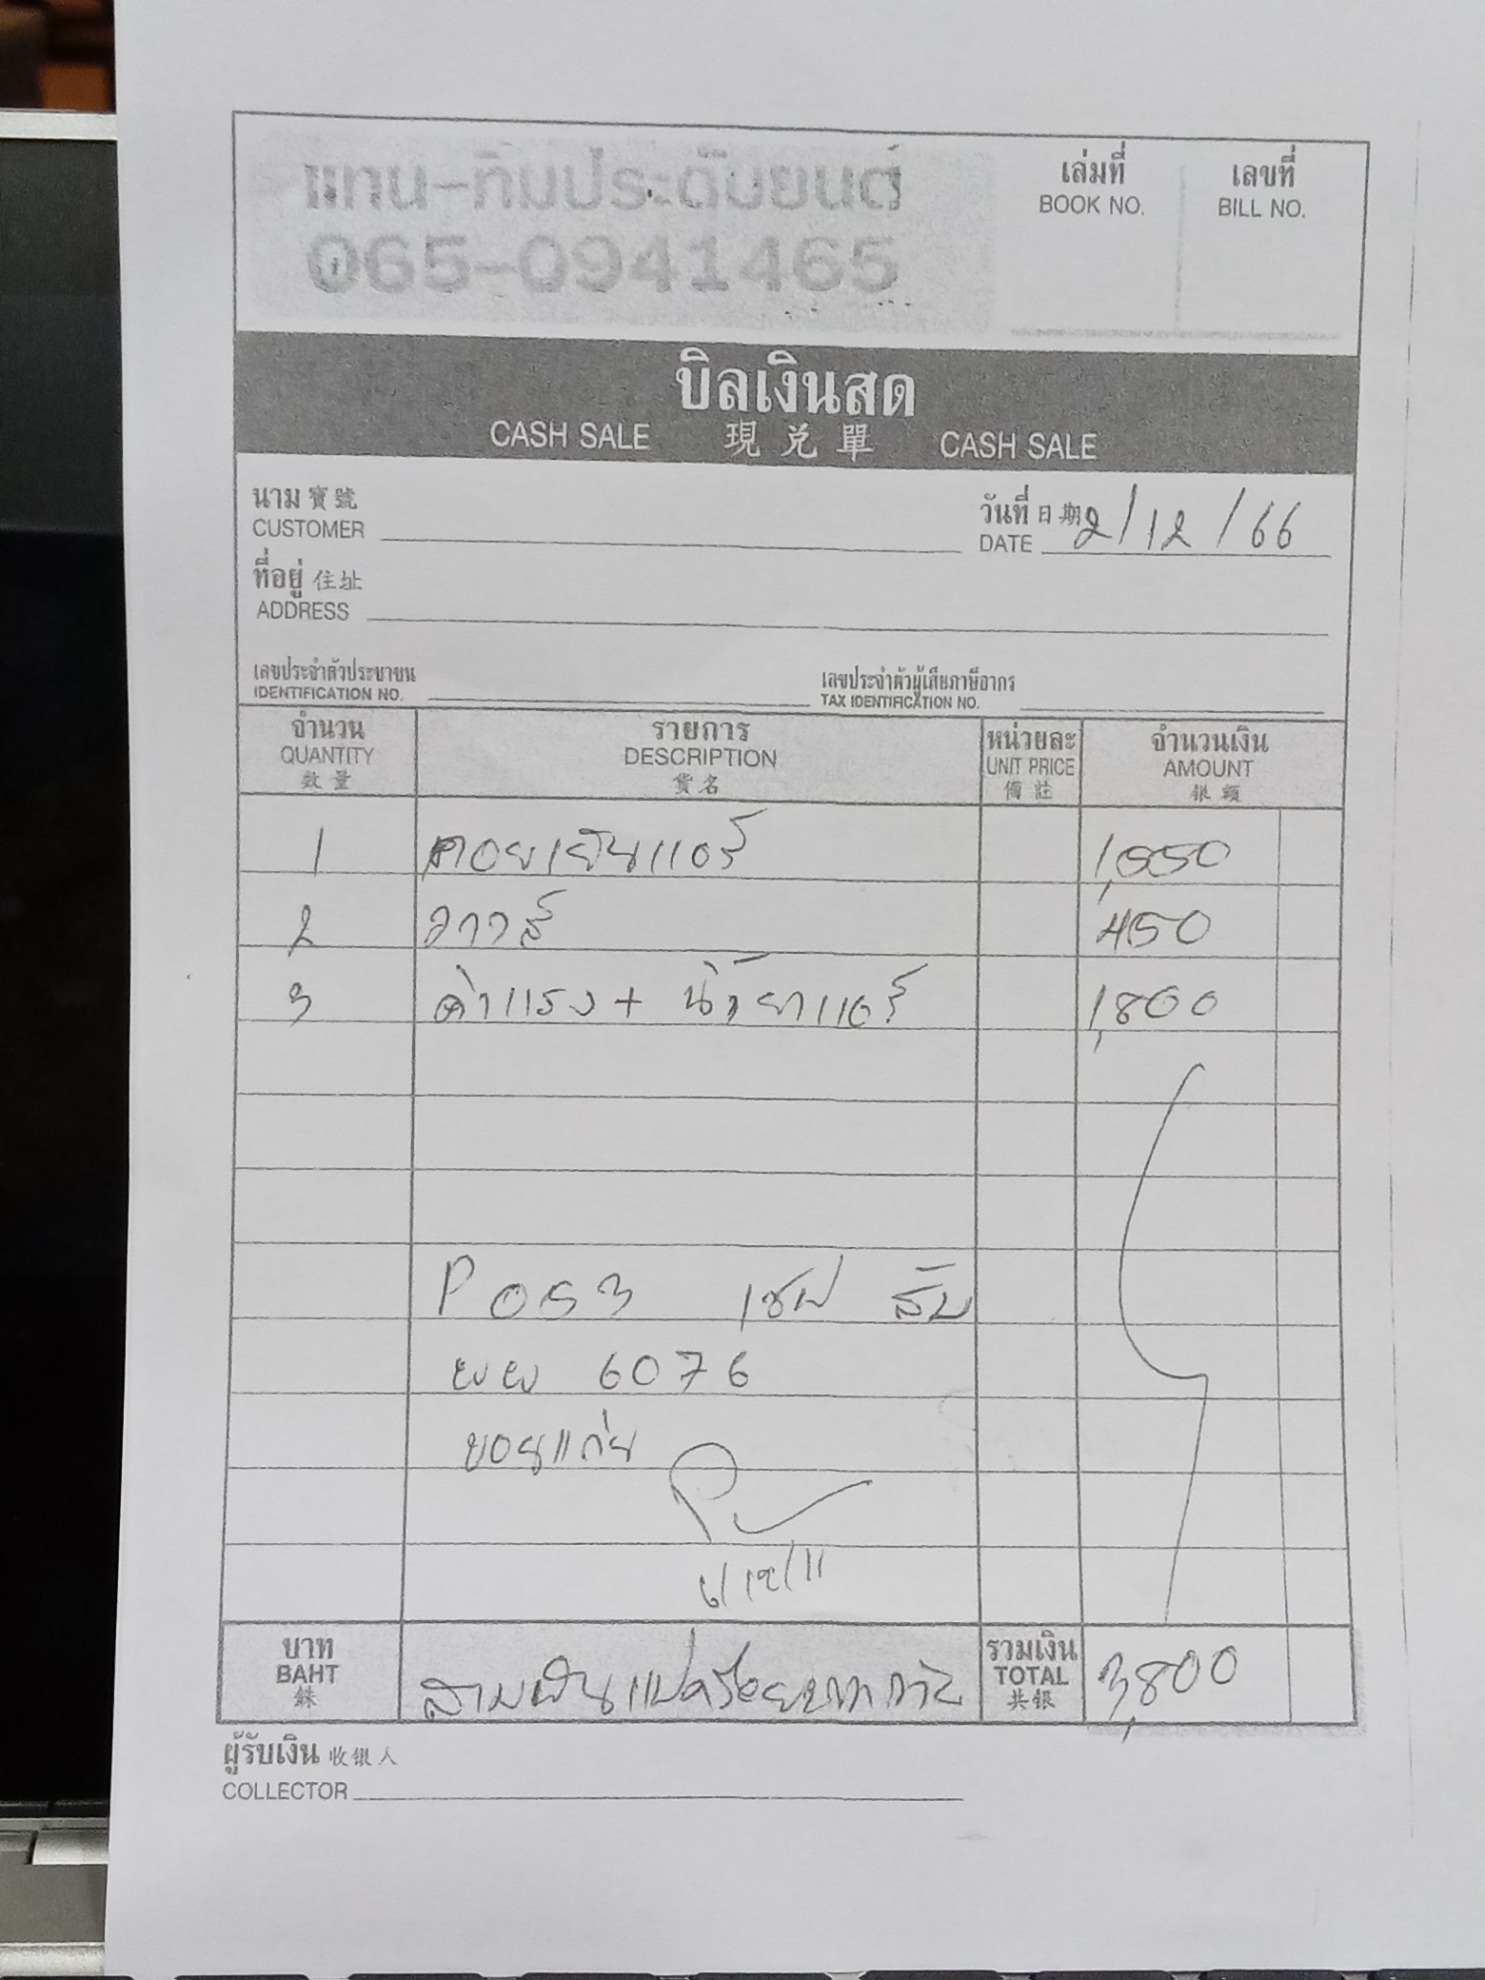 แทน-ทิมประดับยนต์
065-0941465
เล่มที่
BOOK NO.
เลขที่
BILL NO.
บิลเงินสด
CASH SALE 現兑單 CASH SALE
นาม寶號
CUSTOMER
วันที่日期 2/12/66
DATE
ที่อยู่住址
ADDRESS
เลขประจำตัวประชาชน
IDENTIFICATION NO.
เลขประจำตัวผู้เสียภาษีอากร
TAX IDENTIFICATION NO.
จำนวน รายการ หน่วยละ จำนวนเงิน
QUANTITY DESCRIPTION UNIT PRICE AMOUNT
数量 貨名 備註 银額
1 คอยเย็นแอร์ 1,550
2 วาวล์ 450
3 ค่าแรง + น้ำยาแอร์ 1,800
P053 เชฟ
6076
ขอนแก่น
บาท สามพันแปดร้อยบาทถ้วน รวมเงิน 3,800
BAHT TOTAL
銖 共银
ผู้รับเงิน收银人
COLLECTOR